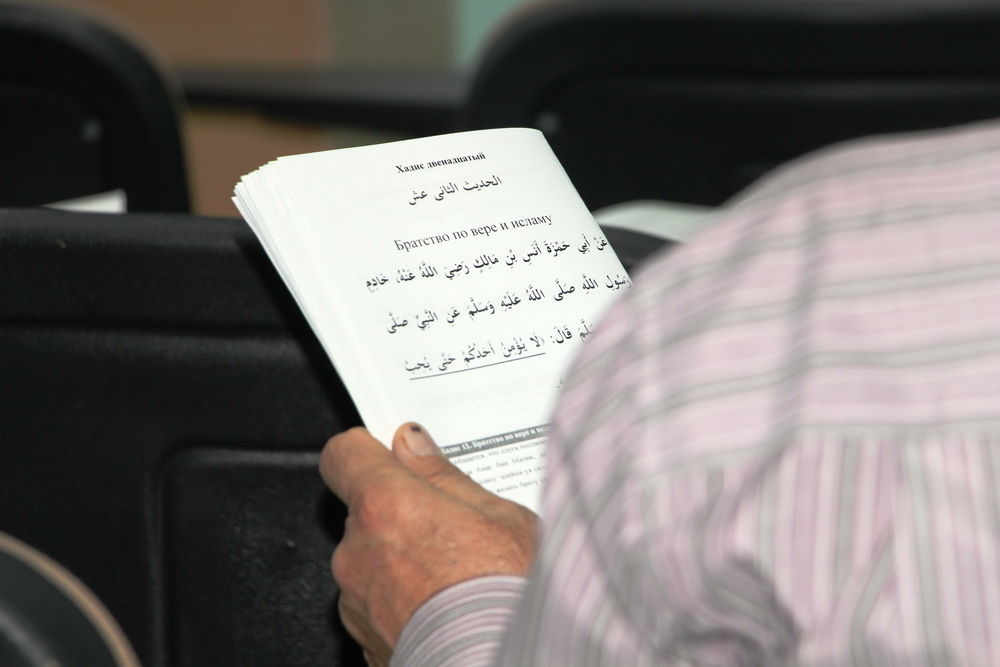 Хадис двенадцатый
الحديث الثانى عش
Братство по вере и исламу
عَنْ أَبِي حَمْزَةَ أَنَسِ بْنِ مَالِكٍ رَضِيَ اللَّهُ عَنْهُ، خَادِمِ
رَسُولِ اللَّهِ صَلَّى اللَّهُ عَلَيْهِ وَسَلَّمَ عَنِ النَّبِيِّ صَلَّى
قَالَ: «لَا يُؤْمِنُ أَحَدُكُمْ حَتَّى يُحِبَّ
12. Братство по вере и
что
Анас бин Малик,
брату